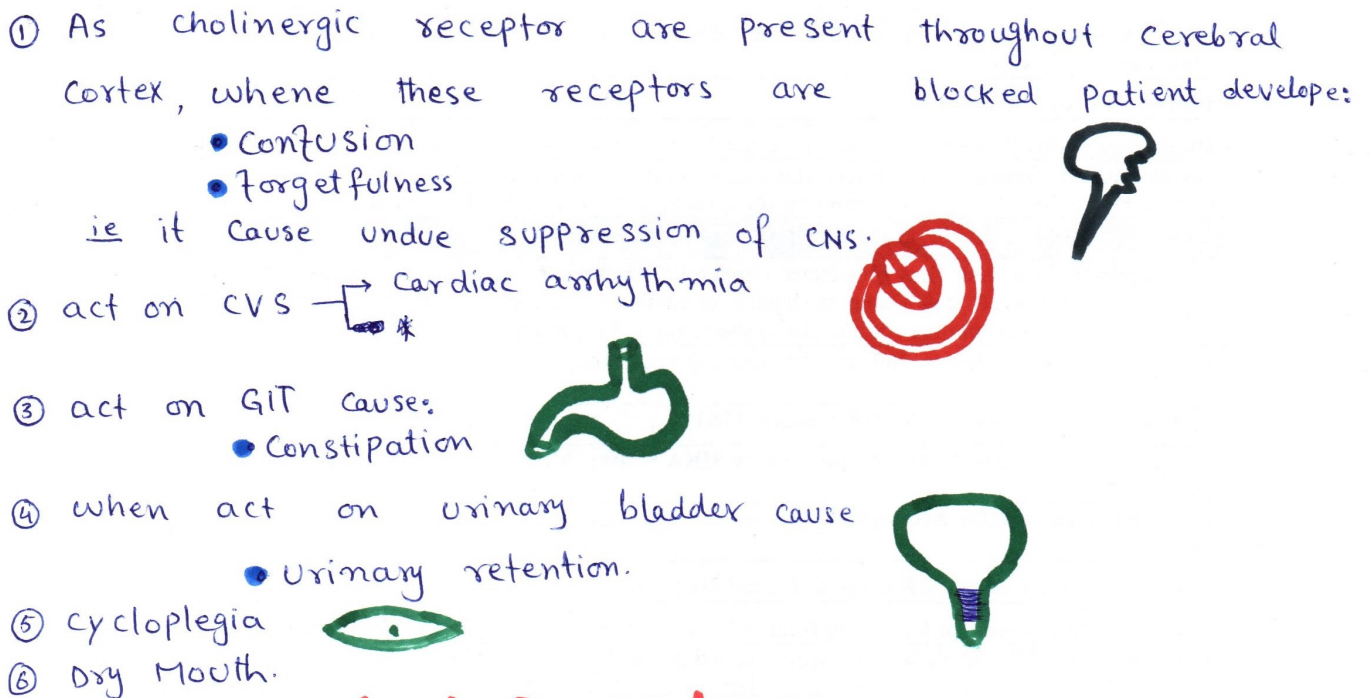 ① As cholinergic receptor are present throughout cerebral
cortex, whene these receptors are blocked patient develope:
• Confusion
• forgetfulness
ie it cause undue suppression of CNS.
② act on CVS → Cardiac arrhythmia
*
③ act on GIT cause:
• Constipation
④ when act on urinary bladder cause
• Urinary retention.
⑤ cycloplegia
⑥ Dry Mouth.